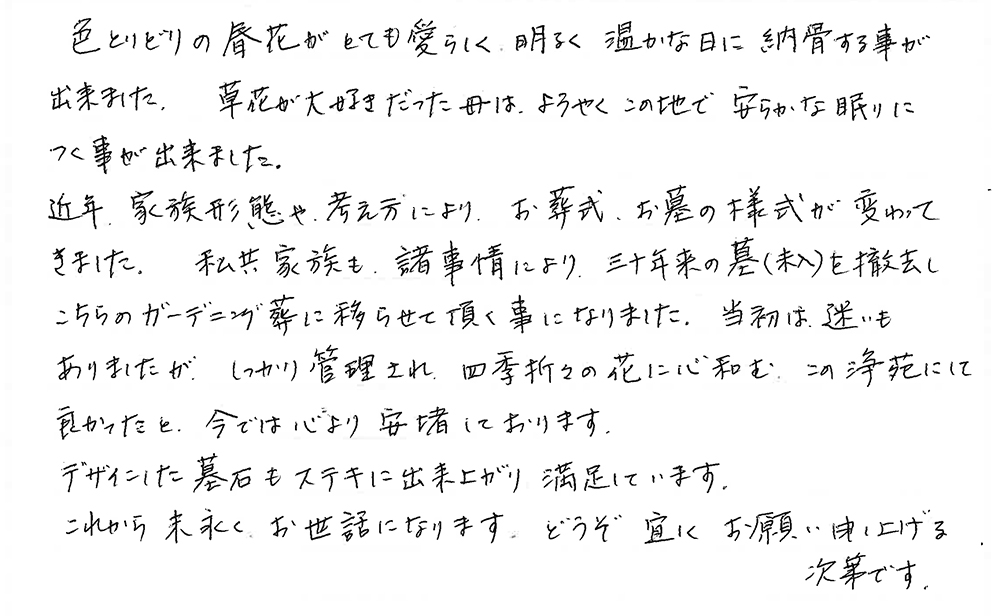 色とりどりの春花がとても愛らしく、明るく温かな日に納骨する事が
出来ました。 草花が大好きだった母は、ようやくこの地で安らかな眠りに
つく事が出来ました。
近年、家族形態や、考え方により、お葬式、お墓の様式が変わって
きました。 私共家族も、諸事情により、三十年来の墓(未入)を撤去し
こちらのガーデニング葬に移らせて頂く事になりました。当初は、迷いも
ありましたが、しっかり管理され、四季折々の花に心和む、この浄苑にて
良かったと、今では心より安堵しております。
デザインした墓石もステキに出来上がり満足しています。
これから末永く、お世話になります。どうぞ宜しくお願い申し上げる
次第です。